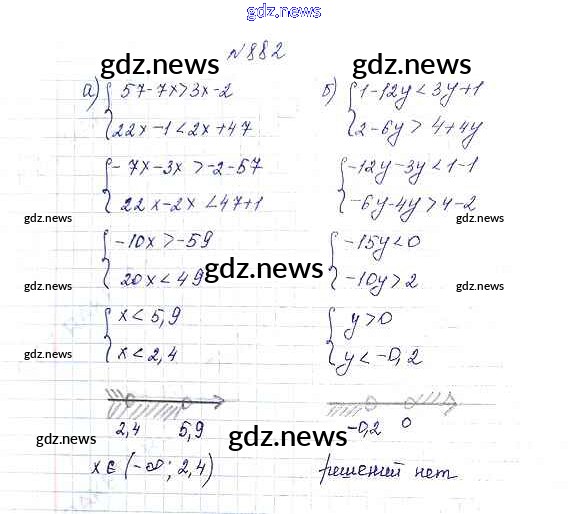 gdz.news
№882
gdz.news gdz.news
а) { 57-7x>3x-2
22x-1<2x+47
{ -7x-3x>-2-57
22x-2x<47+1
gdz.news
{ -10x>-59
20x<49
gdz.news
{ x<5,9
x<2,4
gdz.news
2,4 5,9
gdz.news
x∈(-∞; 2,4)
б) { 1-12y<3y+1
2-6y>4+4y
{ -12y-3y<1-1
-6y-4y>4-2
gdz.news
{ -15y<0
-10y>2
gdz.news
{ y>0
y<-0,2
gdz.news
-0,2 0
gdz.news
gdz.news
решений нет